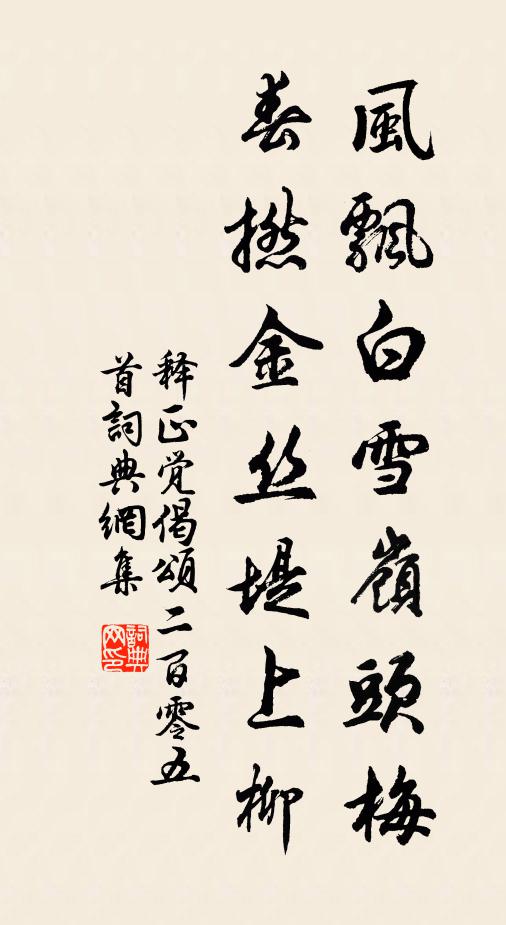 風飄白雪嶺頭梅
春撚金丝堤上柳
释正覺偈頌二百零五
首詞典網集
詞典网印